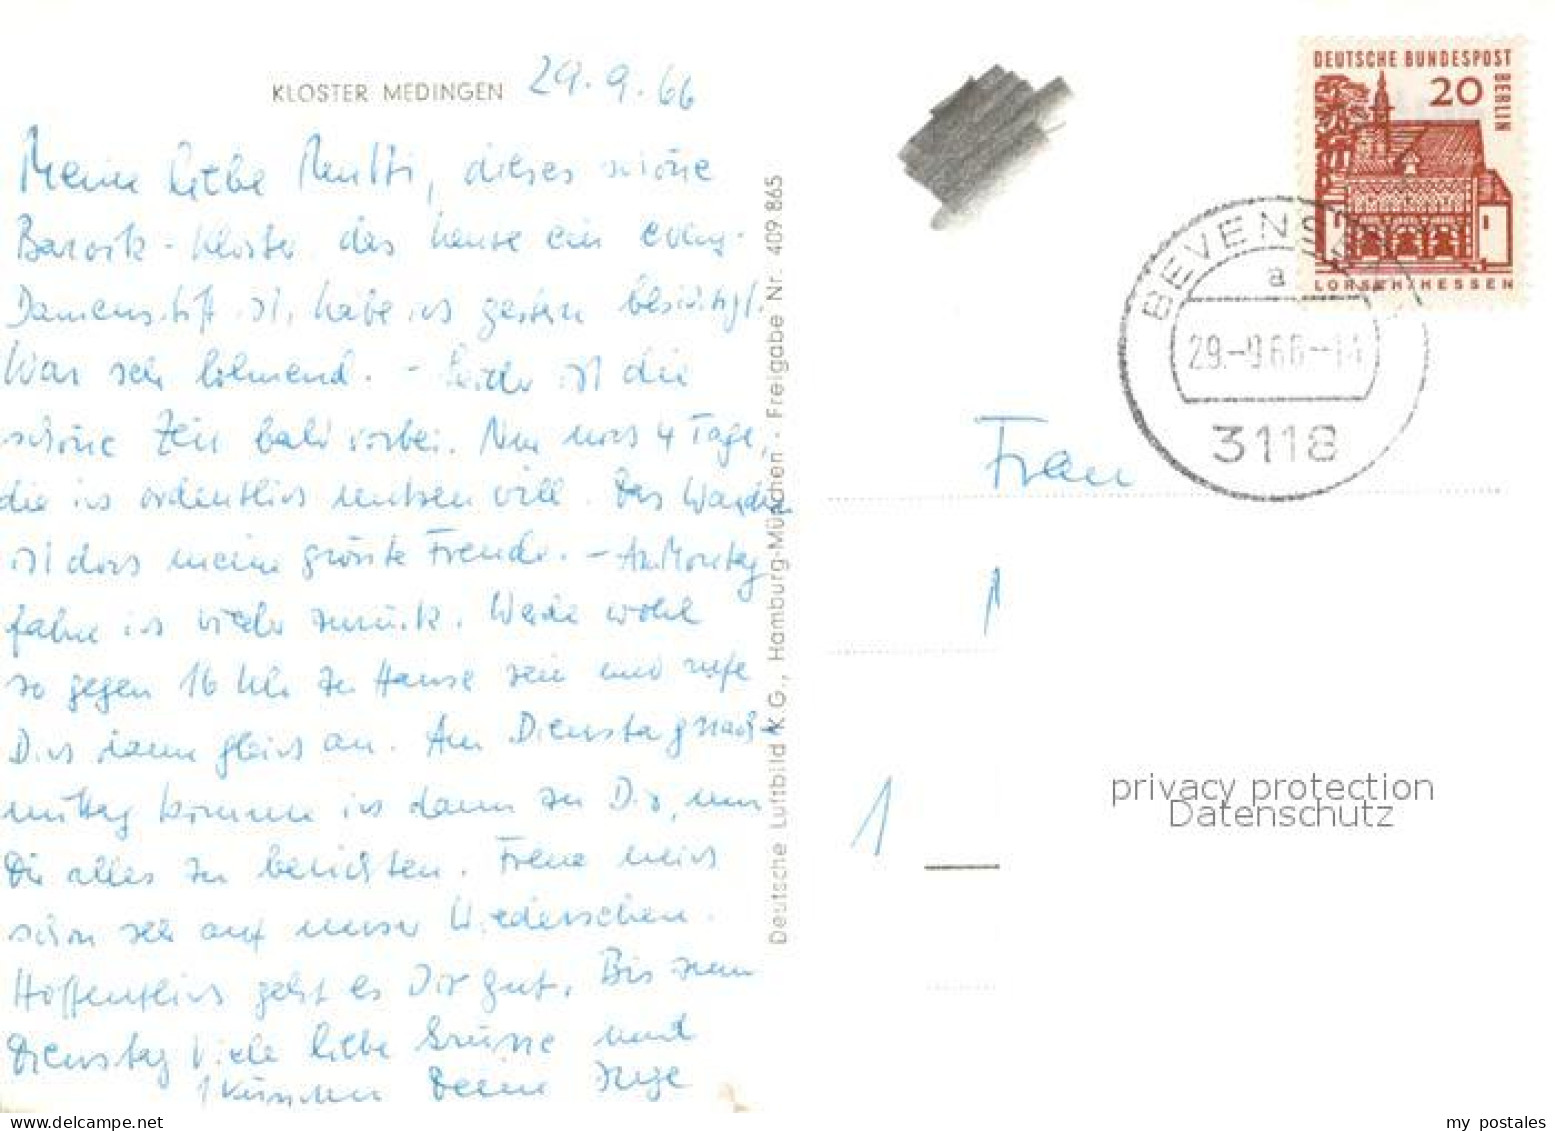 KLOSTER MEDINGEN 29.9.66
Meine liebe Mutti, dieses schöne
Barock-Kloster, das heute ein evang.
Damenstift ist, habe ich gestern besichtigt.
War sehr lohnend. - Leider ist die
schöne Zeit bald vorbei. Nur noch 4 Tage,
die ich ordentlich nutzen will. Das Wandern
ist doch meine grösste Freude. - Am Montag
fahre ich wieder zurück. Werde wohl
so gegen 16 Uhr zu Hause sein und rufe
Dich dann gleich an. Am Dienstag nach-
mittag komme ich dann zu Dir, um
Dir alles zu berichten. Freue mich
schon sehr auf unser Wiedersehen.
Hoffentlich geht es Dir gut. Bis zum
Dienstag viele liebe Grüsse und
1 Küsschen Deine Inge
Deutsche Luftbild K.G., Hamburg-München · Freigabe Nr. 409 865
DEUTSCHE BUNDESPOST
BERLIN
20
LORSCH/HESSEN
BEVENSEN
a
29.-9.66-14
3118
Frau
1
privacy protection
Datenschutz
my postales